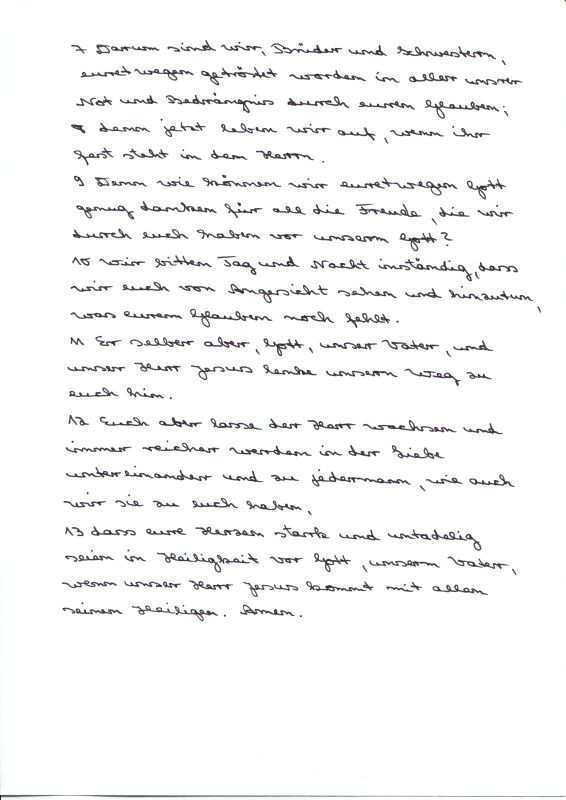 7 Darum sind wir, Brüder und Schwestern,
euretwegen getröstet worden in aller unsrer
Not und Bedrängnis durch euren Glauben;
8 denn jetzt leben wir auf, wenn ihr
fest steht in dem Herrn.
9 Denn wie können wir euretwegen Gott
genug danken für all die Freude, die wir
durch euch haben vor unserm Gott?
10 Wir bitten Tag und Nacht inständig, dass
wir euch von Angesicht sehen und hinzutun,
was eurem Glauben noch fehlt.
11 Er selber aber, Gott, unser Vater, und
unser Herr Jesus lenke unsern Weg zu
euch hin.
12 Euch aber lasse der Herr wachsen und
immer reicher werden in der Liebe
untereinander und zu jedermann, wie auch
wir sie zu euch haben,
13 dass eure Herzen stark und untadelig
seien in Heiligkeit vor Gott, unserm Vater,
wenn unser Herr Jesus kommt mit allen
seinen Heiligen. Amen.